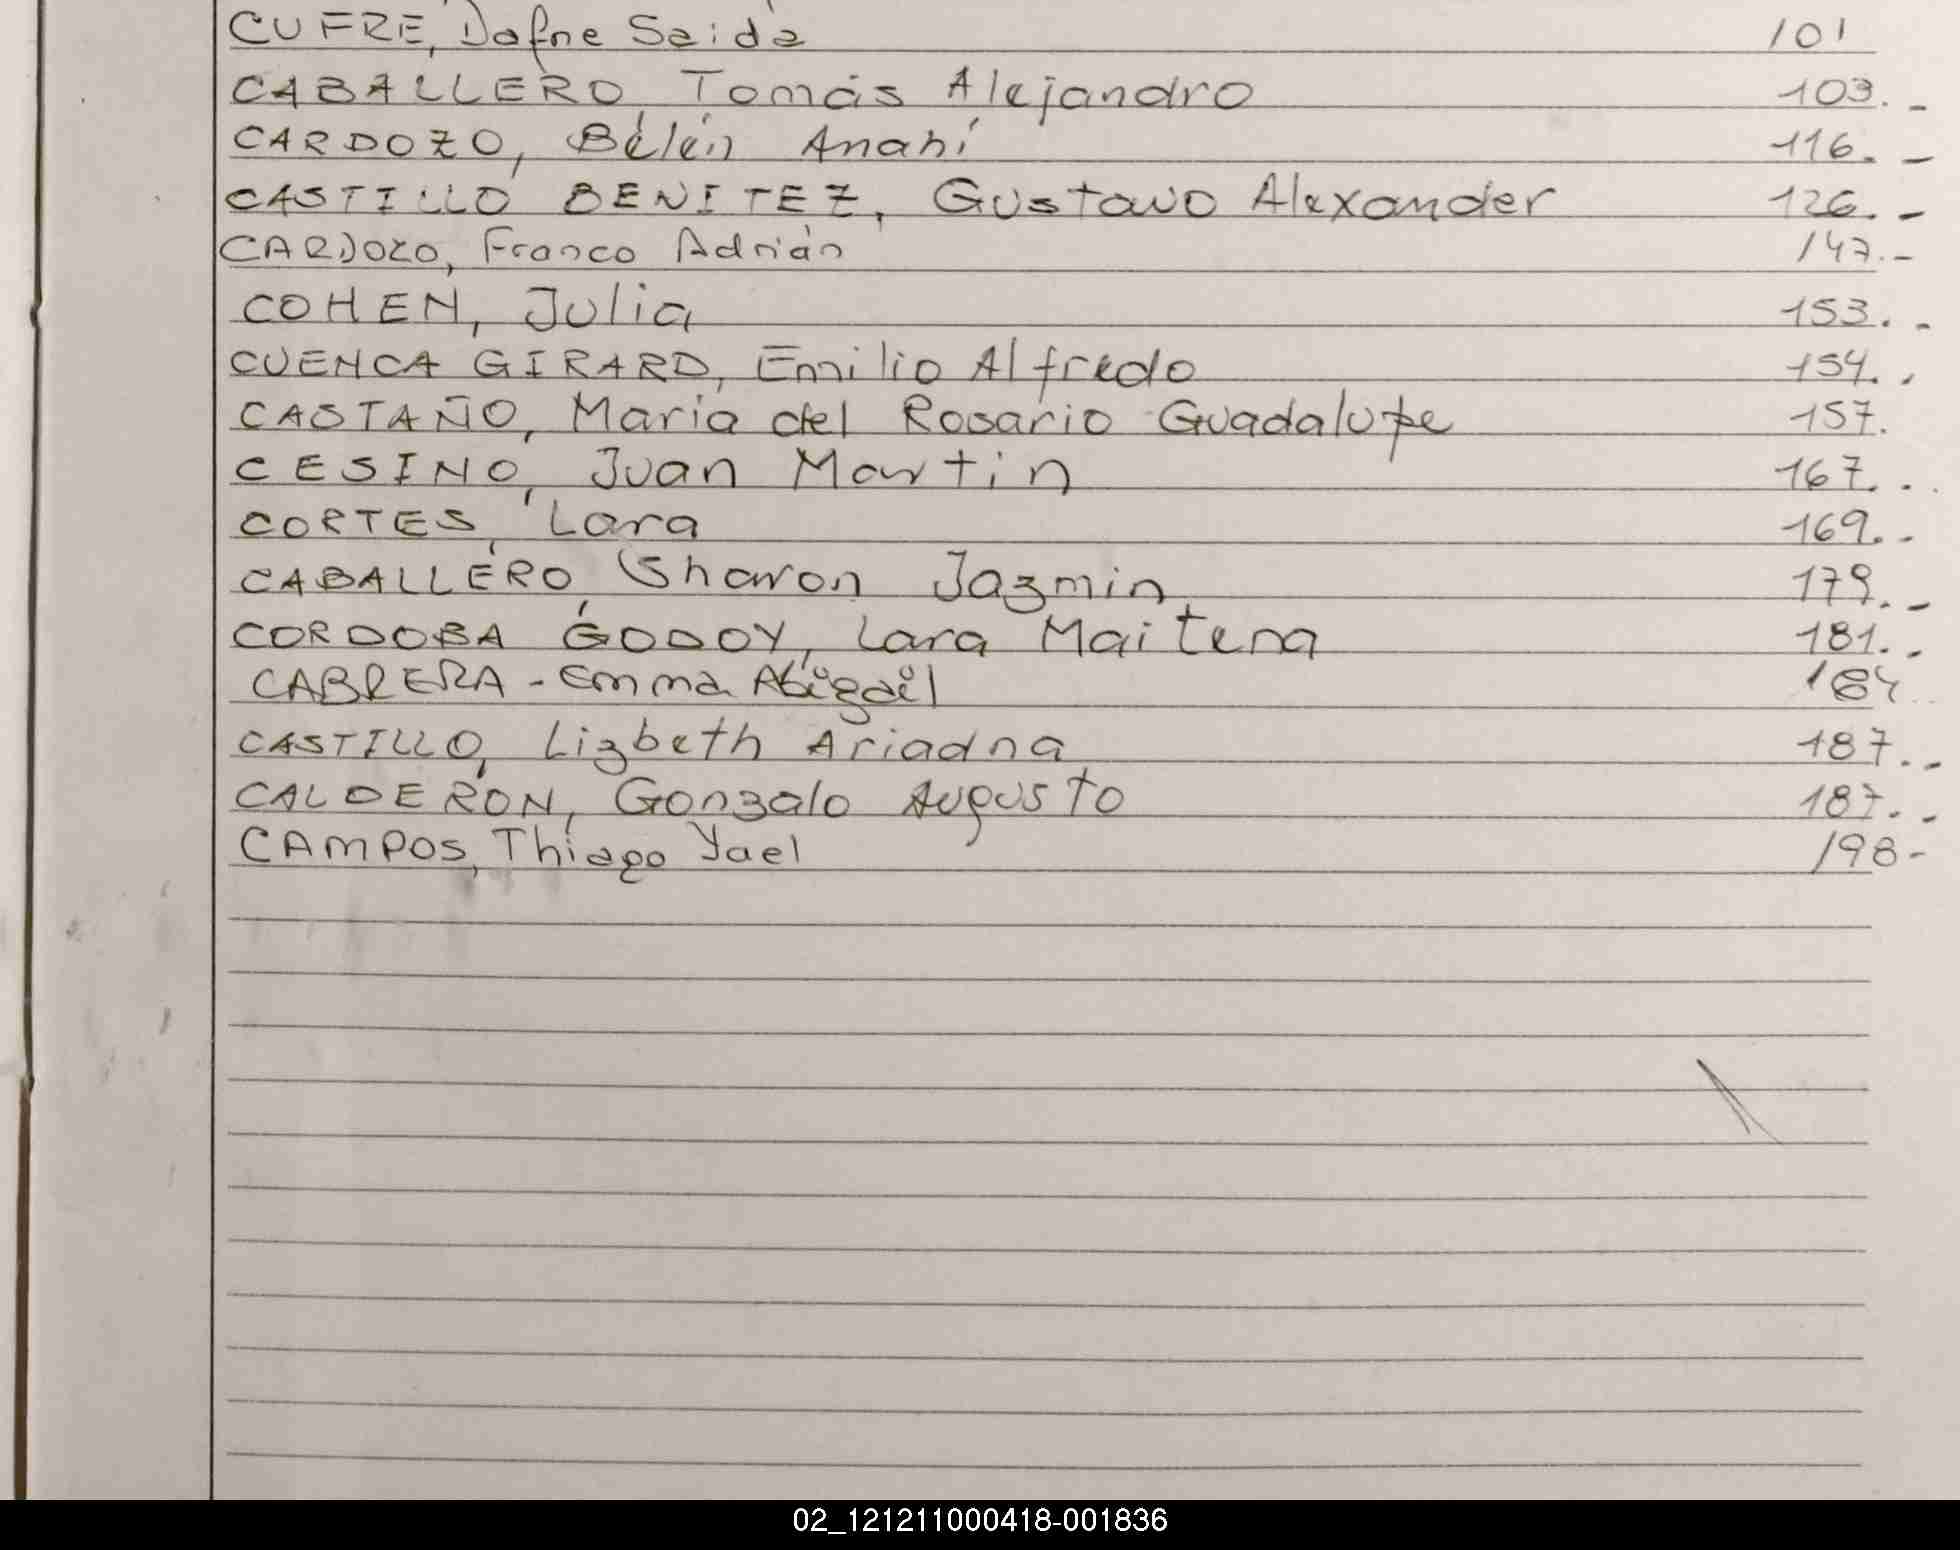 CUFRE, Dafne Saida 101
CABALLERO, Tomás Alejandro 103.-
CARDOZO, Bélén Anahí 116.-
CASTILLO BENITEZ, Gustavo Alexander 126.-
CARDOZO, Franco Adrián 147.-
COHEN, Julia 153.-
CUENCA GIRARD, Emilio Alfredo 154.-
CASTAÑO, Maria del Rosario Guadalupe 157.
CESINO, Juan Martin 167.-
CORTES, Lara 169.-
CABALLERO, Sharon Jazmin 179.-
CORDOBA GODOY, Lara Maitena 181.-
CABRERA - Emma Abigail 184
CASTILLO, Lizbeth Ariadna 187.-
CALDERON, Gonzalo Augusto 187.-
CAMPOS, Thiago Yael 198-
02_121211000418-001836